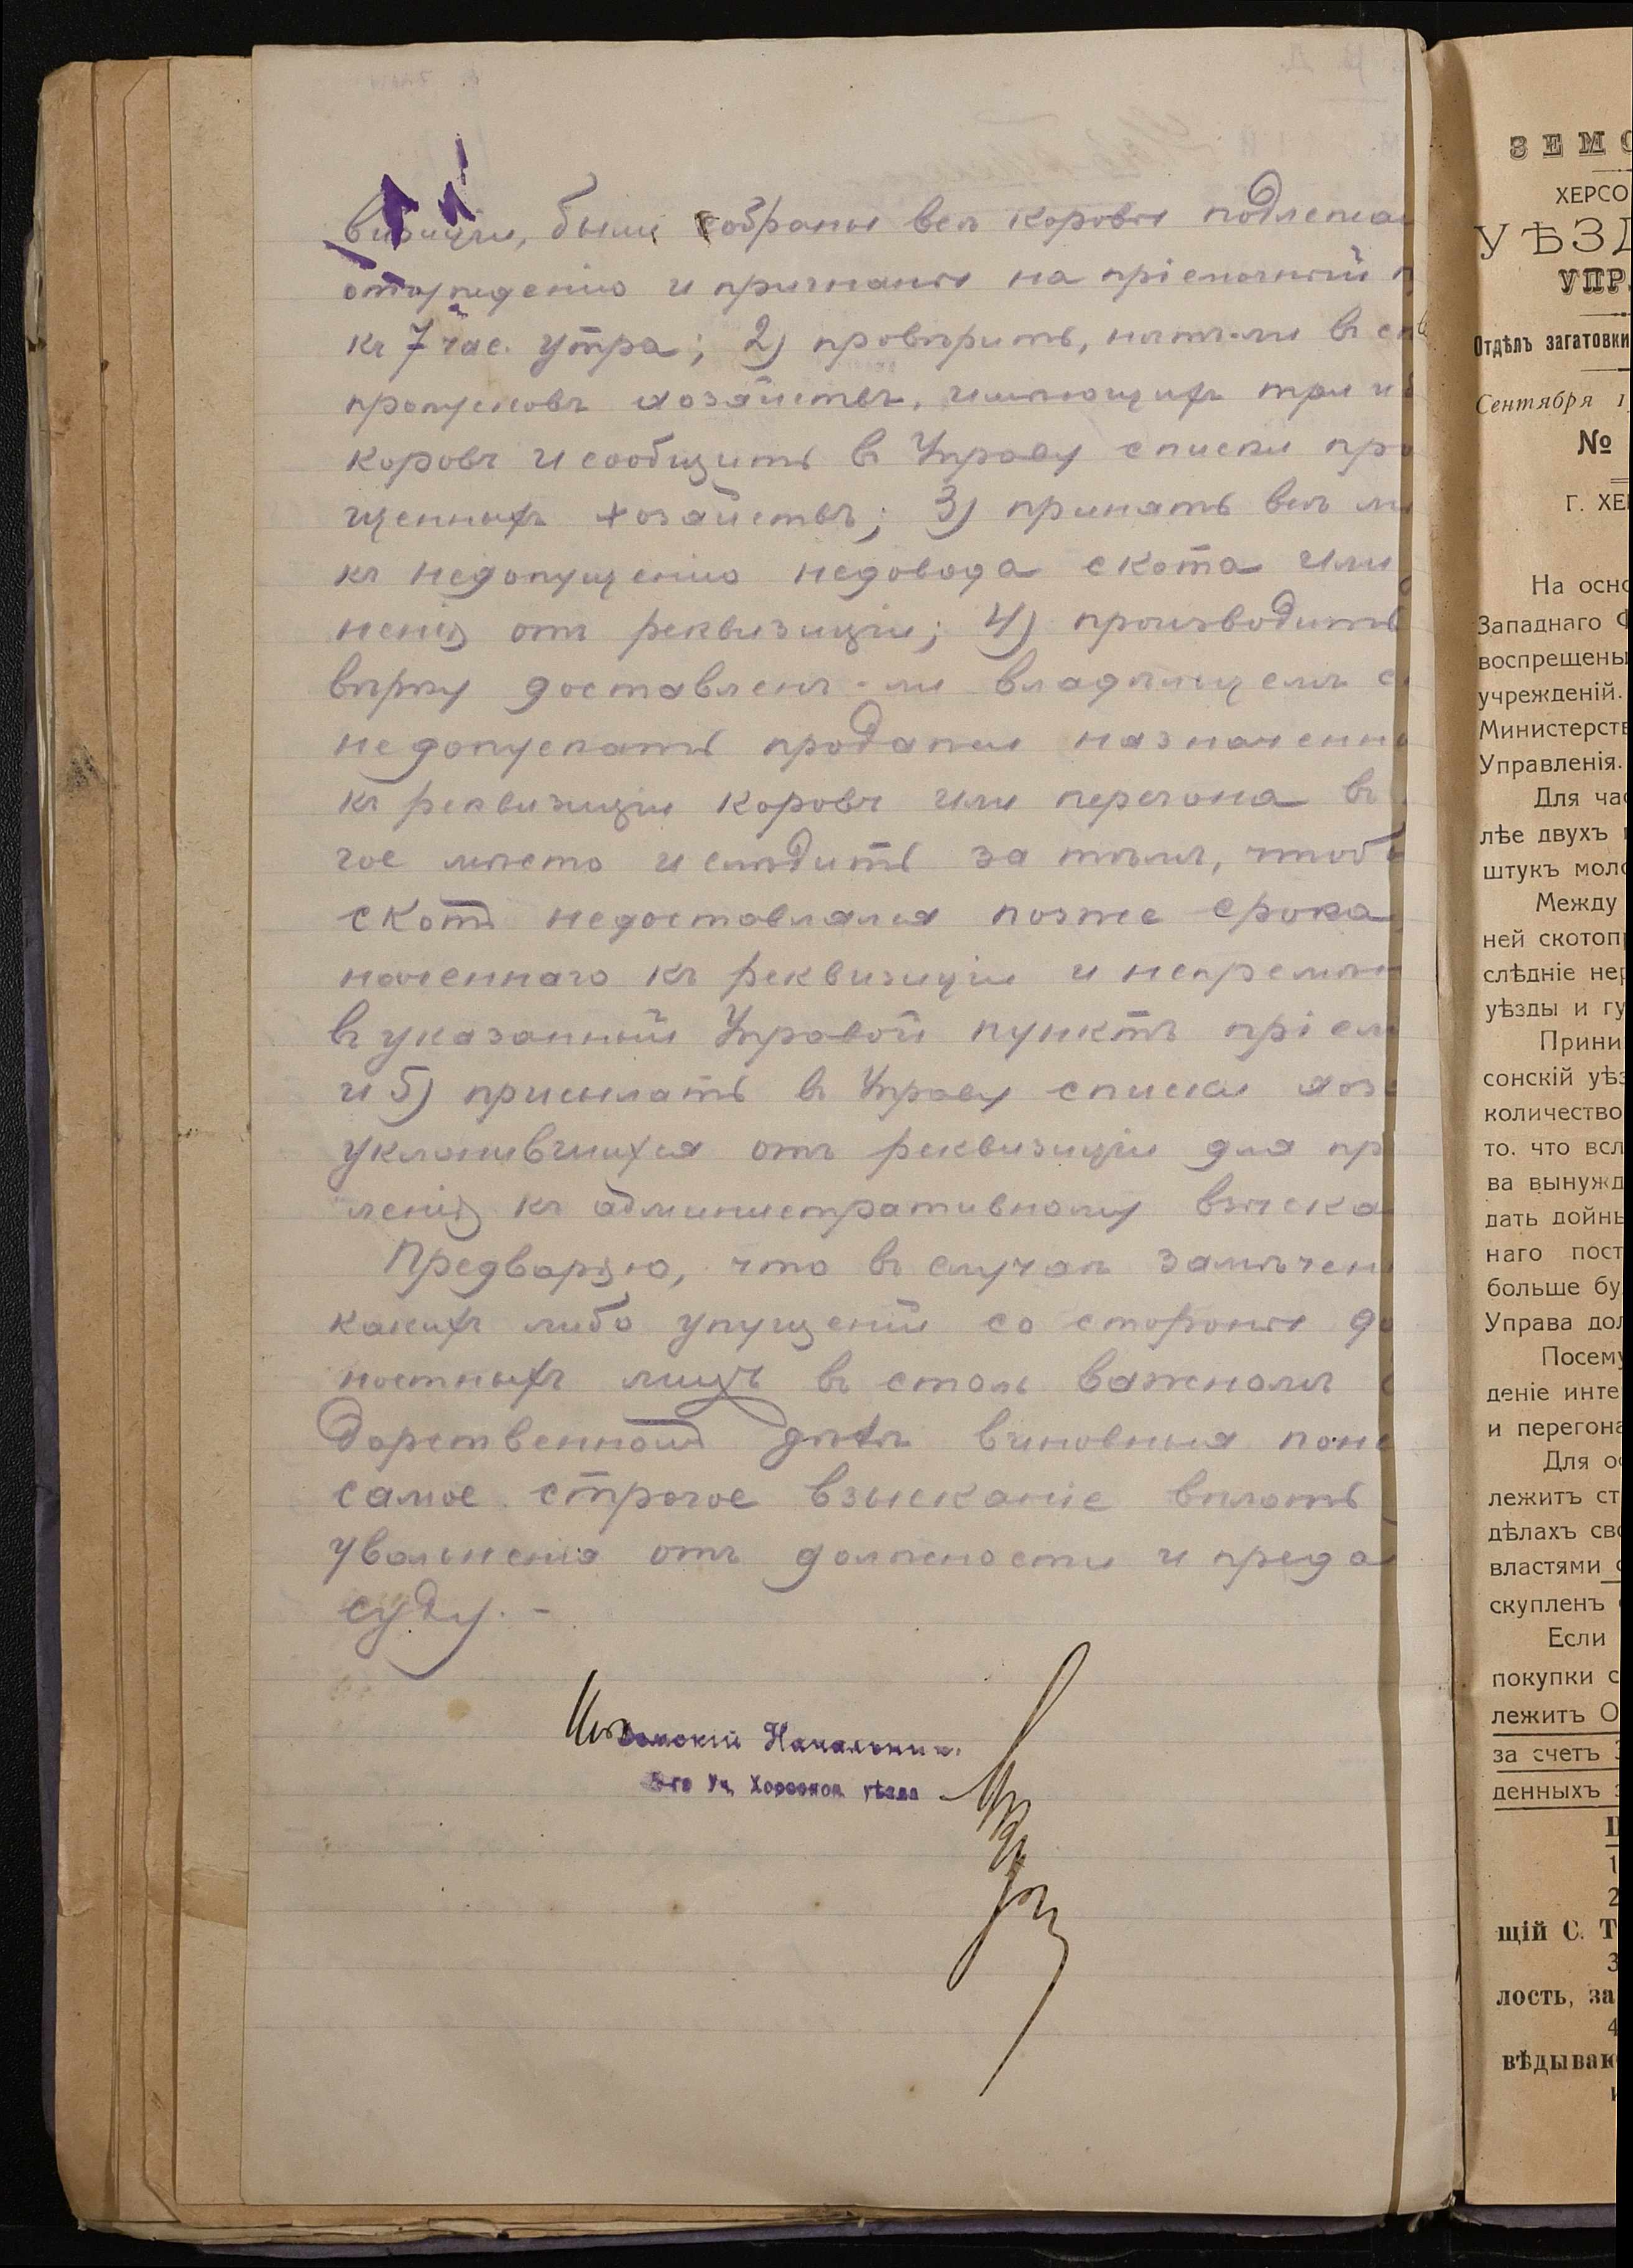 визиціи, были собраны всѣ коровы подлежа
отчужденію и пригнаны на пріемочный п
къ 7 час. утра; 2) провѣрить, нѣтъ-ли въ сп
пропусковъ хозяйствъ, имѣющихъ три и
коровъ и сообщить въ Управу списки про
щенныхъ хозяйствъ; 3) принять всѣ мѣ
къ недопущенію недовода скота или
ненія отъ реквизиціи; 4) производить
вѣрку доставленъ-ли владѣльцемъ с
недопускать продажи назначенн
къ реквизиціи коровъ или перегона въ
гое мѣсто и слѣдить за тѣмъ, чтобы
скотъ недоставлялся позже срока
наченнаго къ реквизиціи и непремѣн
въ указанный Управой пунктъ пріем
и 5) присылать въ Управу списки хозя
уклонившихся отъ реквизиціи для пр
ленія къ административному взыска
Предваряю, что въ случаѣ замѣчен
какихъ либо упущеній со стороны до
ностныхъ лицъ въ столь важномъ
дарственномъ дѣлѣ виновныя поне
самое строгое взысканіе вплоть
увольненія отъ должности и преда
суду. -
Земскій Начальникъ
5-го Уч. Херсонск. уѣзда
ЗЕМС
ХЕРСО
УѢЗД
УПР
Отдѣлъ заготовки
Сентября 1
№
Г. ХЕ
На осно
Западнаго Ф
воспрещены
учрежденій.
Министерств
Управленія.
Для час
лѣе двухъ
штукъ моло
Между
ней скотопр
слѣдніе нер
уѣзды и гу
Прини
сонскій уѣз
количество
то. что всл
ва вынужд
дать дойны
наго пост
больше бу
Управа дол
Посему
деніе инте
и перегона
Для ос
лежитъ ст
дѣлахъ сво
властями с
скупленъ
Если
покупки с
лежитъ О
за счетъ З
денныхъ з
П
1
2
щій С. Т
3
лость, за
4
вѣдываю